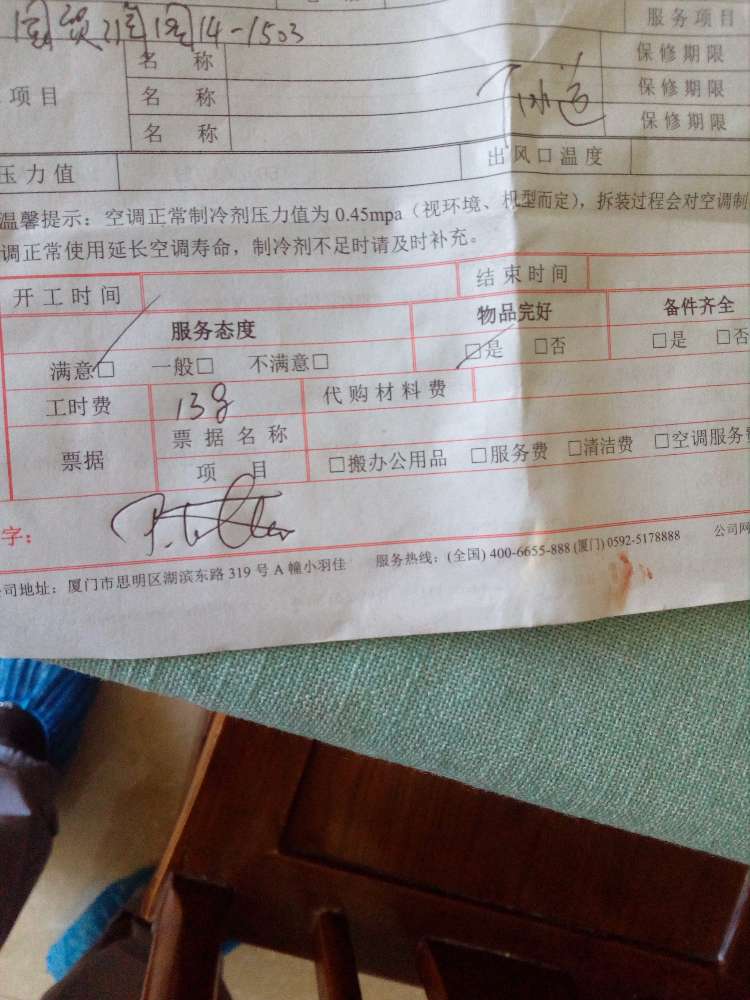 14-1503
服务项目
名称 保修期限
项目 名称 保修期限
名称 保修期限
压力值 出风口温度
温馨提示：空调正常制冷剂压力值为 0.45mpa（视环境、机型而定），拆装过程会对空调制
调正常使用延长空调寿命，制冷剂不足时请及时补充。
开工时间 结束时间
服务态度 物品完好 备件齐全
满意□ 一般□ 不满意□ □是 □否 □是 □否
工时费 138 代购材料费
票据 票据名称
项目 □搬办公用品 □服务费 □清洁费 □空调服务
字：
司地址：厦门市思明区湖滨东路 319 号 A 幢小羽佳 服务热线：(全国) 400-6655-888 (厦门) 0592-5178888 公司网